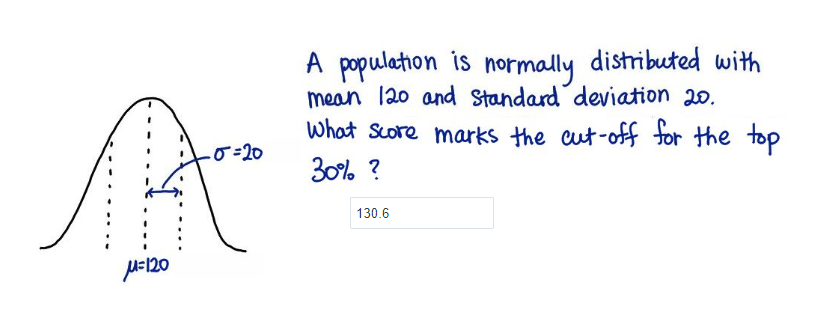 A population is normally distributed with
mean 120 and standard deviation 20.
What score marks the cut-off for the top
30% ?
σ=20
130.6
μ=120